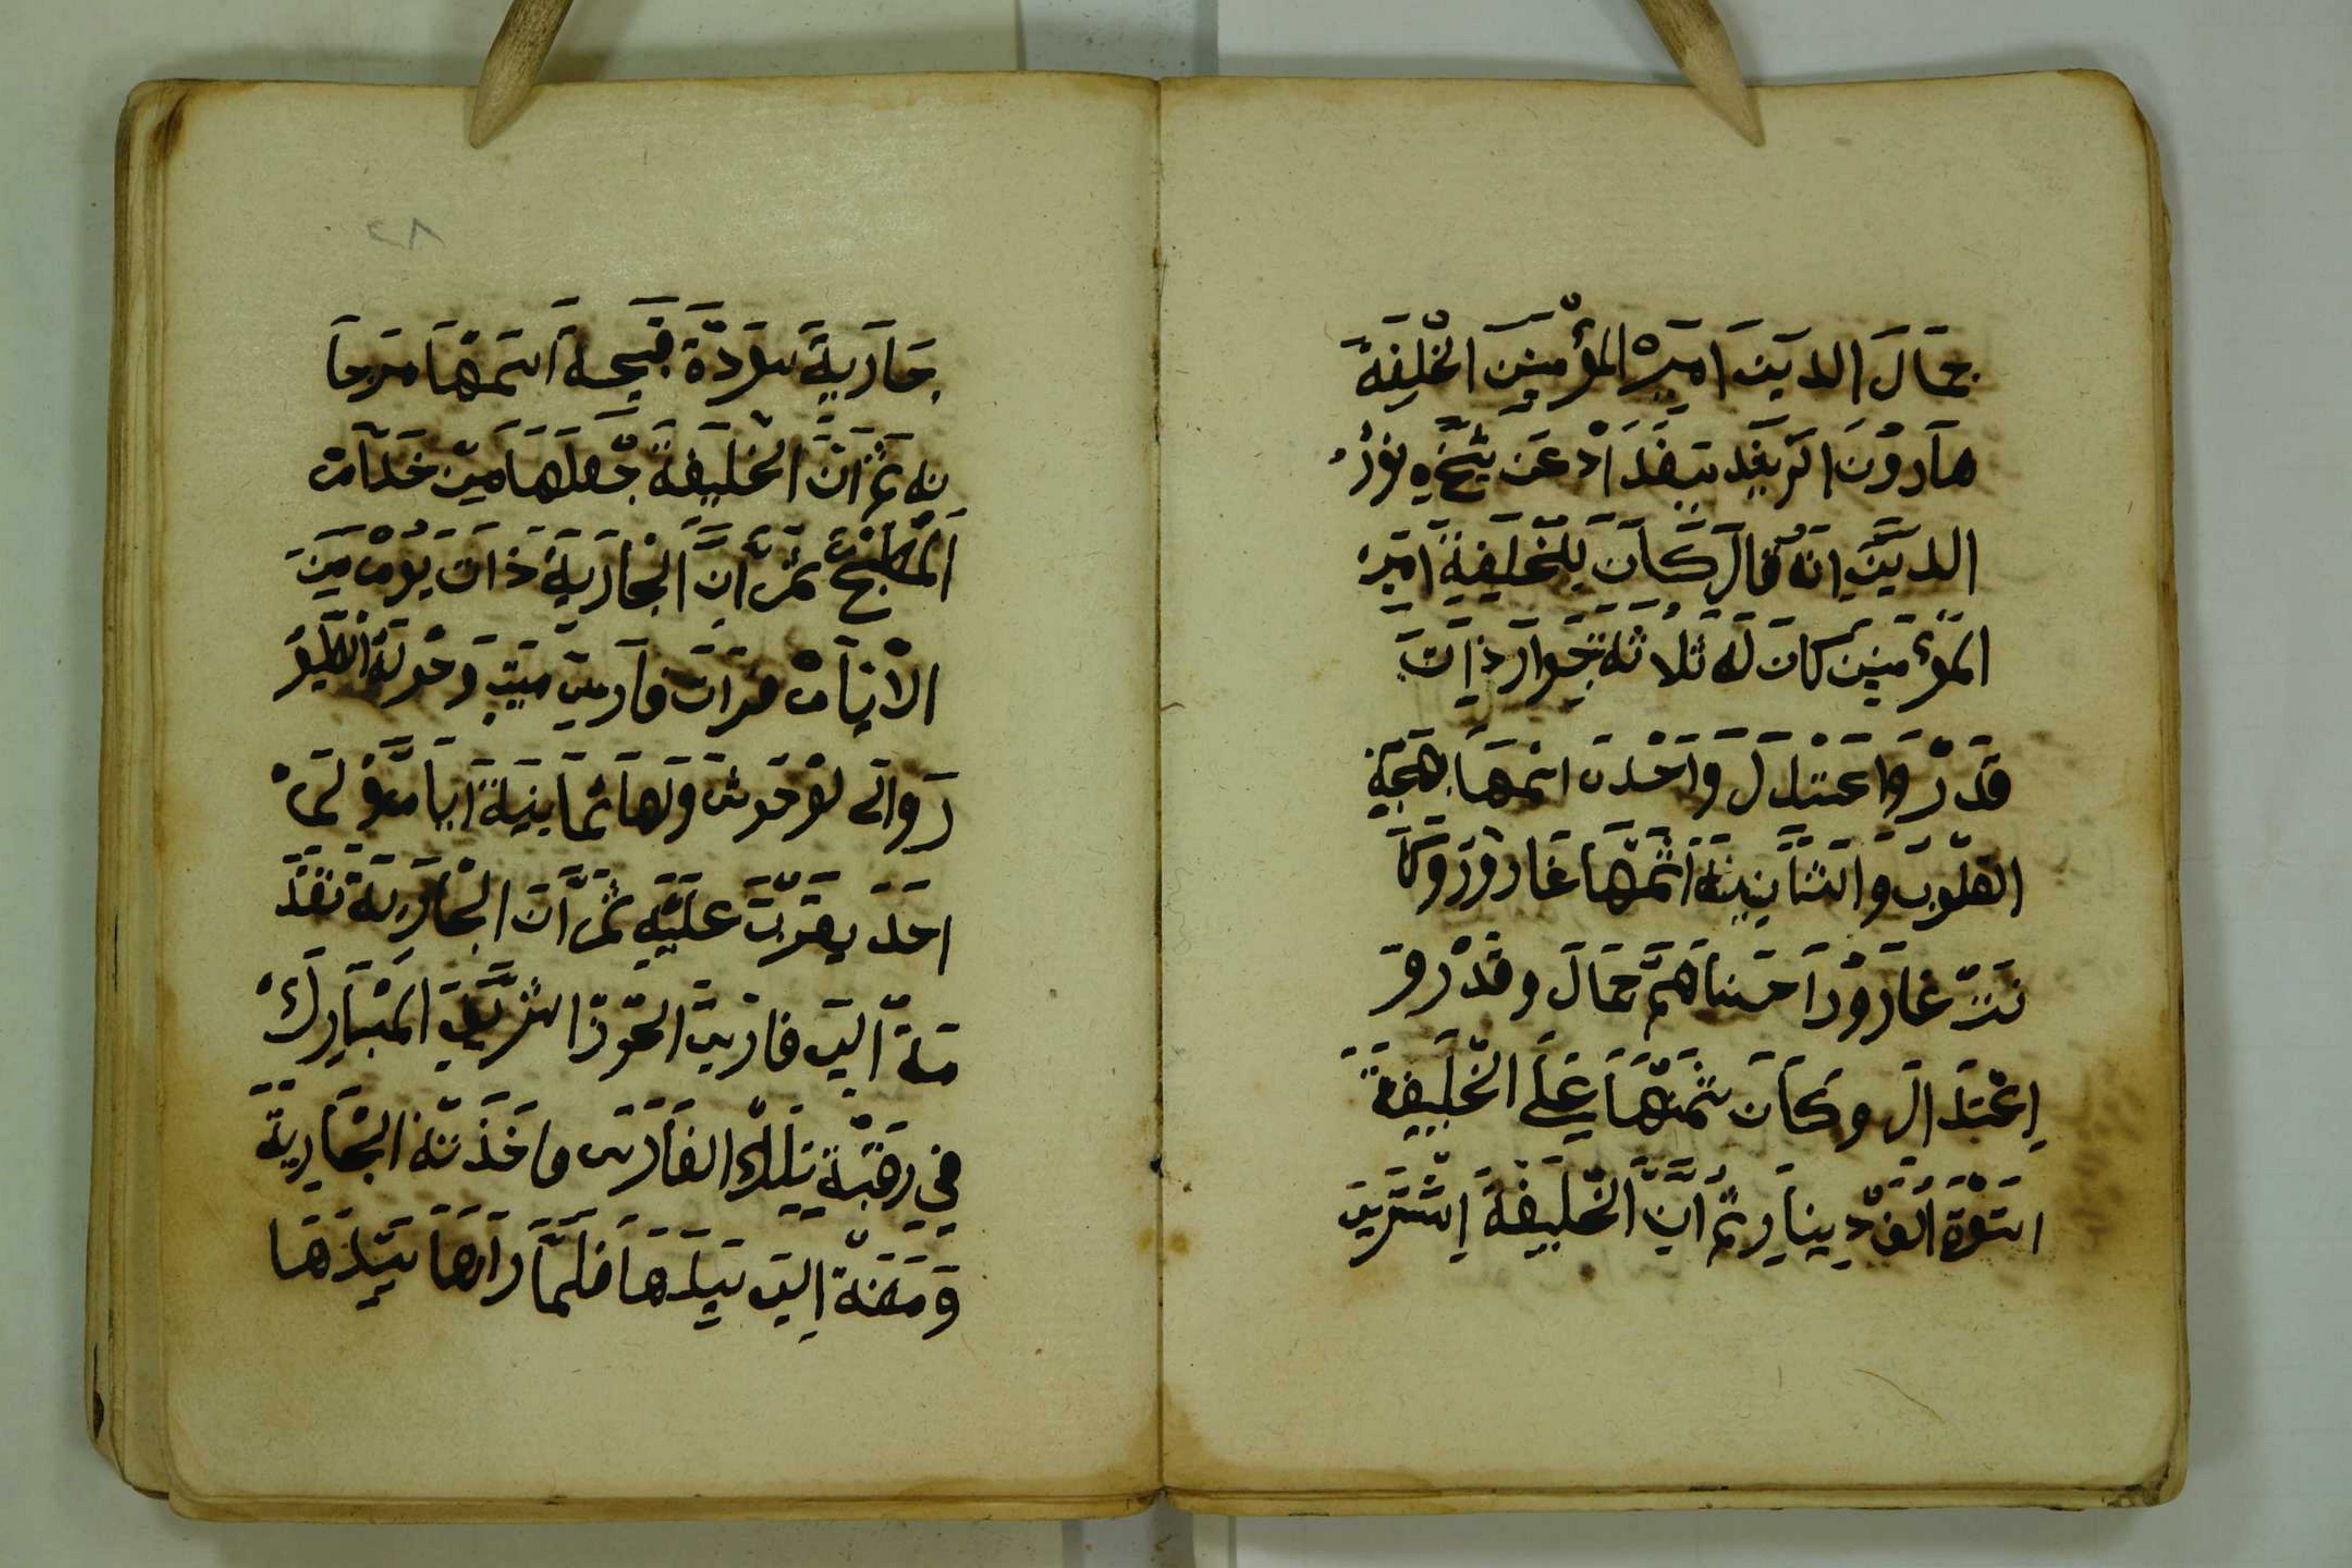 جمَالَ الديَن اميَرْ المؤمنِينَ الخْلِيفَة
هاَرُونَ الرَشِيَد بَبِغَدَادْ عَن شَيْخهِ نوُرُ
الديَّنِ انهُ قاَلَ كَاَنَ لِلخَلِيَفةِ اميَر
المؤمنيَن كانَ لَه ثلاثة جَوارَ ذاَتَ
قَدْرْ وَاعَتدَلَ وَاحْدَه اسْمَهَا بهَجَة
القلَوُبَ والثَنَانيَة اسْمَهَا غَارَوُرَ وَكاَ
نَتْ غاَروُرَ احَسَناهَمَّ جَمَالَ وقَدْرْ وَ
اِعْتدَالَ وكَاَنَ ثمَنَهَا عَلَى الخَليِفَة
استوة اَلفَ دِينَارِ ثمُ انَّ الخَليِفَةَ اِشْتَريَ
٢٨
جَاَريِةَ سَودَة قَبِيحَة اسَمْهَا مَرجاَ
نه ثمَ انَّ الخْلَيِفَة جَعلهَا مِنْ خَدَاَمْ
اَلمْطَبخْ ثمَ اَنِ الجْارَيَةَ ذاتَ يَوُمْ مِنَ
الاْيَاَمْ مَرَاتَ فاَرسِ مَيتِ وَحَولَهُ الطَيُورَ
رَوالَى لوُحوُش ولهَا ثمَاَنيَةَ اَياَمَ وَ لمَ
احَدَ يِقرَبَ عَليَهِ ثمَ اَنَ الجْاَريَة تقَدَ
مَةْ اليَ فارسِ الحَوذَا الشَريَفِ المْبَاَرِكْ
في رقَبَةْ تِلَكْ الفَاَرسِ وَاخَذَتهُ الجَاريَة
وَمَضَةْ اليَ سَيدَهَا فَلمَّا رَاَهَا سَيدَهَا